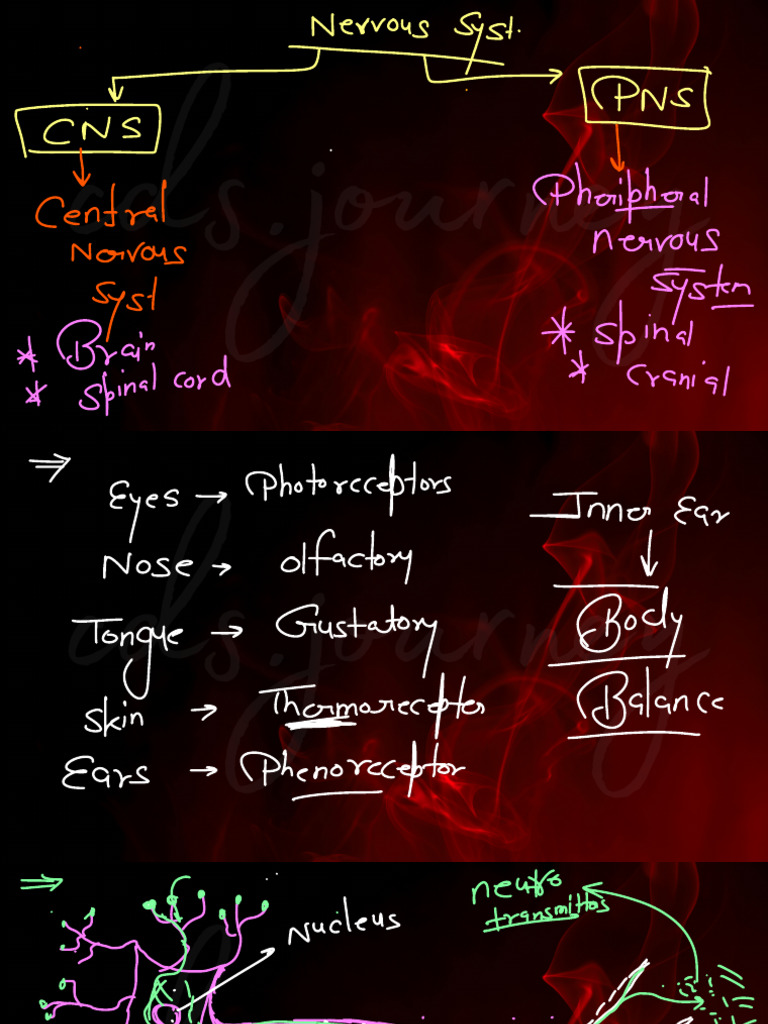 Nervous Syst.
CNS
PNS
Central
Nervous
Syst
* Brain
* Spinal cord
Pheripheral
nervous
System
* Spinal
* Cranial
⇒
Eyes → Photoreceptors
Nose → olfactory
Tongue → Gustatory
Skin → Thermoreceptor
Ears → Phenoreceptor
Inner Ear
↓
Body
Balance
⇒
Nucleus
neuro
transmittos
cds.journey
cds.journey